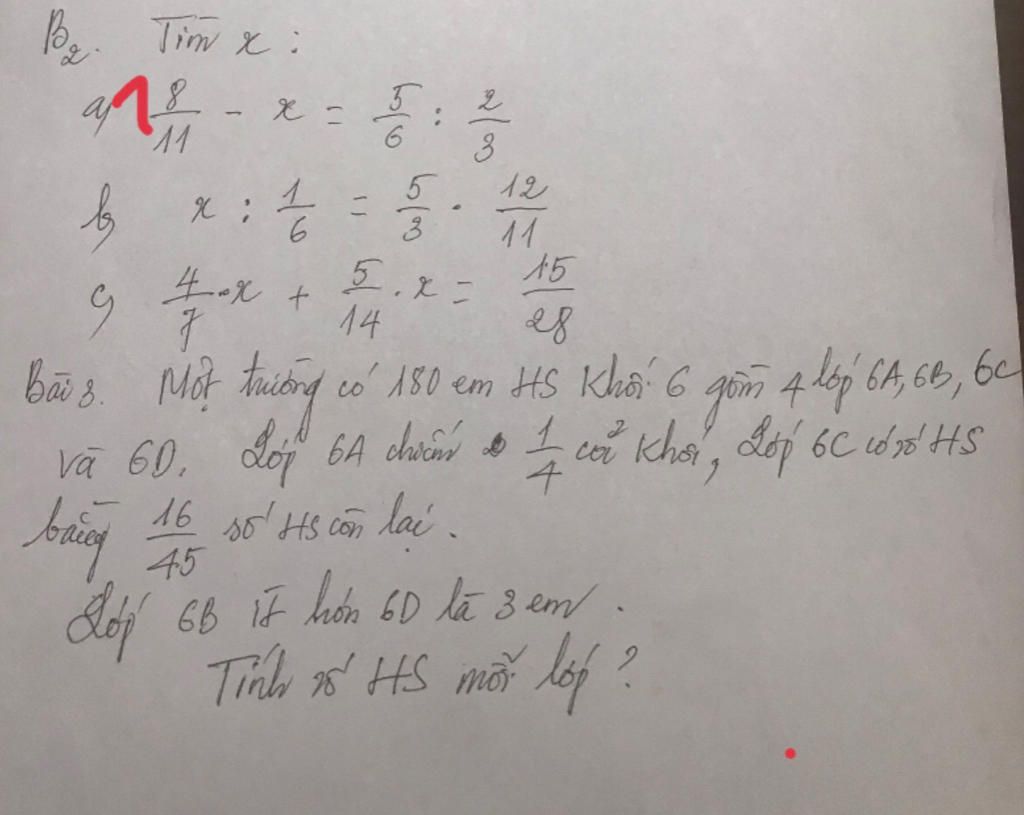 B2. Tìm x :
a) 1 8/11 - x = 5/6 : 2/3
b) x : 1/6 = 5/3 . 12/11
c) 4/7 . x + 5/14 . x = 15/28
Bài 3. Một trường có 180 em HS khối 6 gồm 4 lớp 6A, 6B, 6C
và 6D. Lớp 6A chiếm 1/4 cả khối, Lớp 6C có số HS
bằng 16/45 số HS còn lại.
Lớp 6B ít hơn 6D là 3 em.
Tính số HS mỗi lớp ?